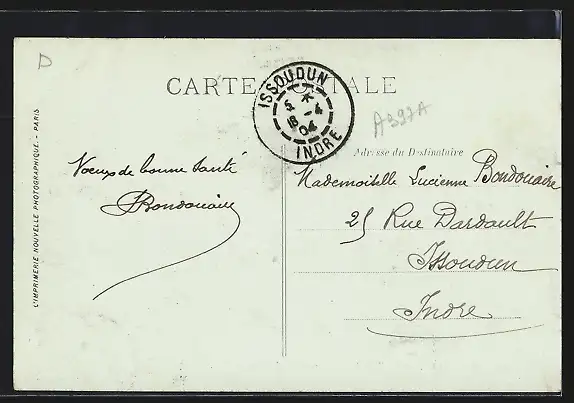 D
CARTE POSTALE
ISSOUDUN
5 *
18 -4
04
INDRE
A397A
Adresse du Destinataire
Voeux de bonne Santé
Bondouaire
Mademoiselle Lucienne Bondouaire
25 Rue Dardault
Issoudun
Indre
L'IMPRIMERIE NOUVELLE PHOTOGRAPHIQUE. - PARIS